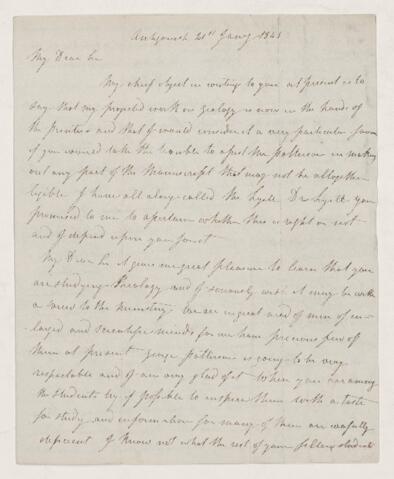 21st Jany 1841
My Dear Sir
My chief object in writing to you at present is to
say that my projected work on Geology is now in the hands of
the printers and that I would consider it a very particular favour
if you would take the trouble to assist Mr Patterson in making
out any part of the Manuscript that may not be altogether
legible I have all along called Mr Lyell Dr Lyell you
promised to me to ascertain whether this is right or not
and I depend upon you for it
My Dear Sir it gives me great pleasure to learn that you
are studying Theology and I seriously wish it may be with
a view to the ministry we are in great need of men of en-
larged and scientific minds for we have precious few of
them at present George Patterson is going to be very
respectable and I am very glad of it When you are among
the students try if possible to inspire them with a taste
for study and information for many of them are woefully
deficient I know not what the rest of your fellow students